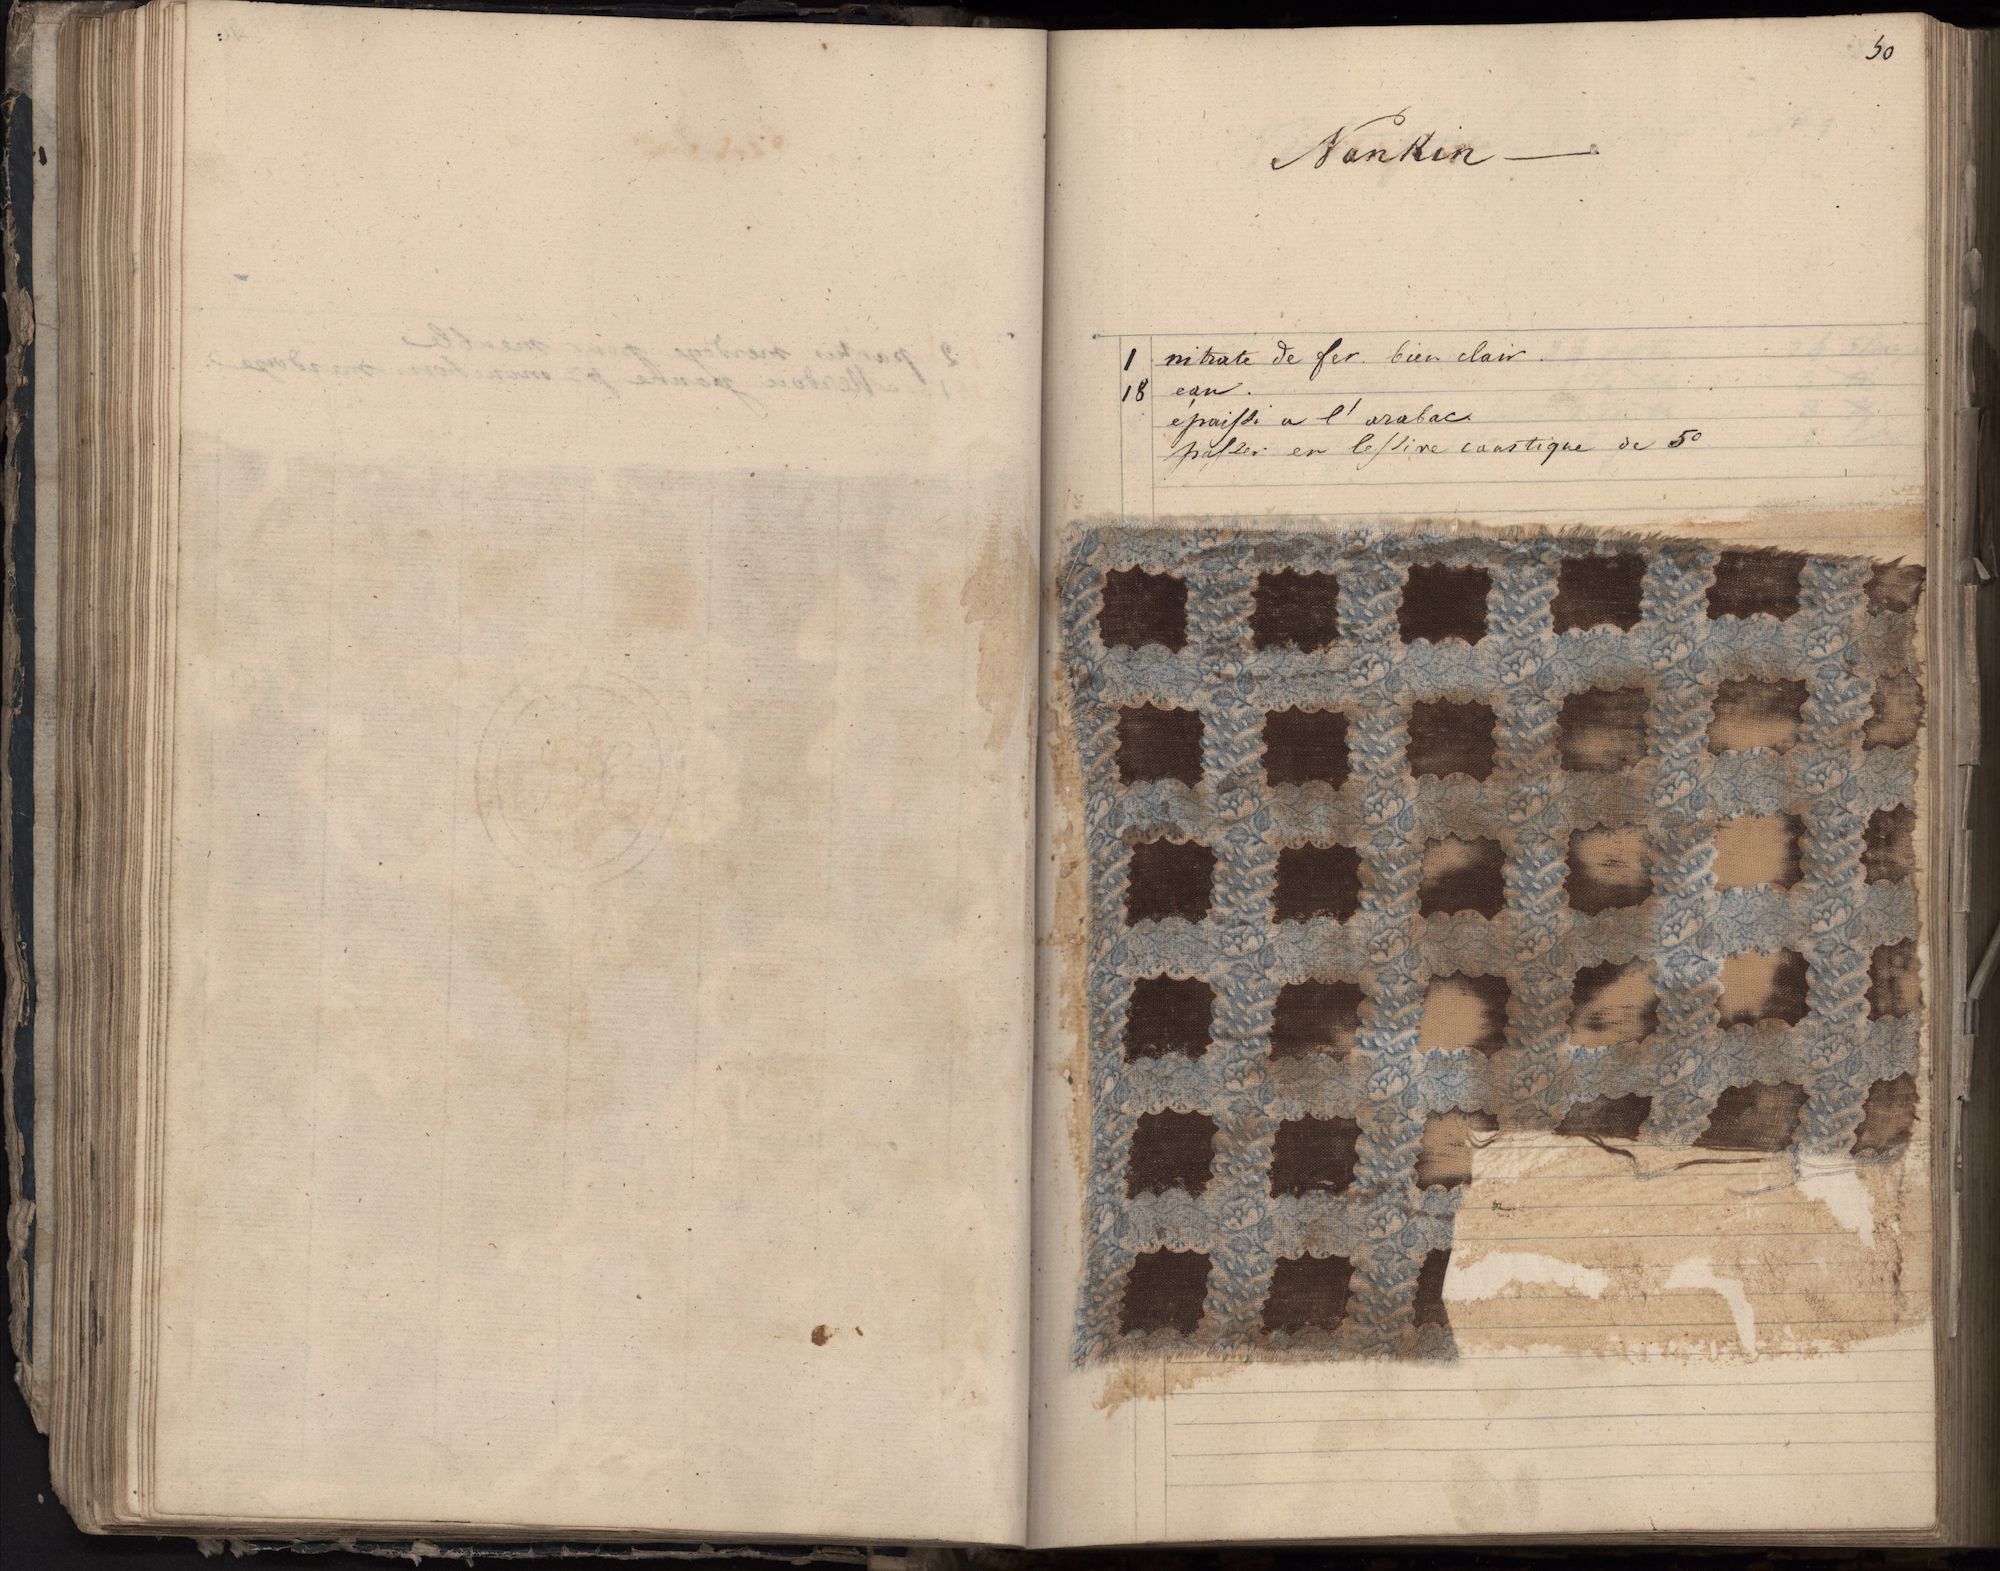 50
Nankin —
1 nitrate de fer. bien clair.
18 eau.
épaissi a l'arabac
passer en lessive caustique de 5°